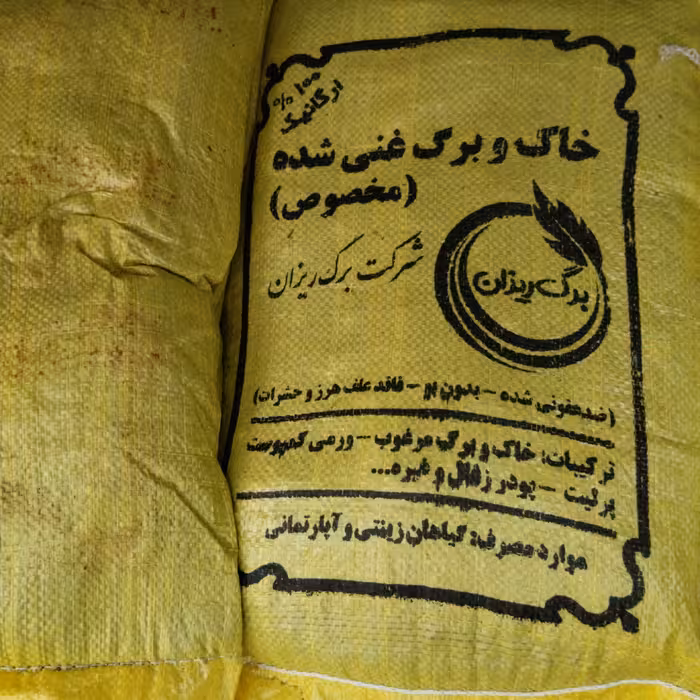 ۱۰۰ %
ارگانیک
خاک و برگ غنی شده
(مخصوص)
شرکت برگ ریزان
برگ ریزان
(ضدعفونی شده - بدون بو - فاقد علف هرز و حشرات)
ترکیبات: خاک و برگ مرغوب - ورمی کمپوست
پرلیت - پودر زغال و غیره...
موارد مصرف: گیاهان زینتی و آپارتمانی